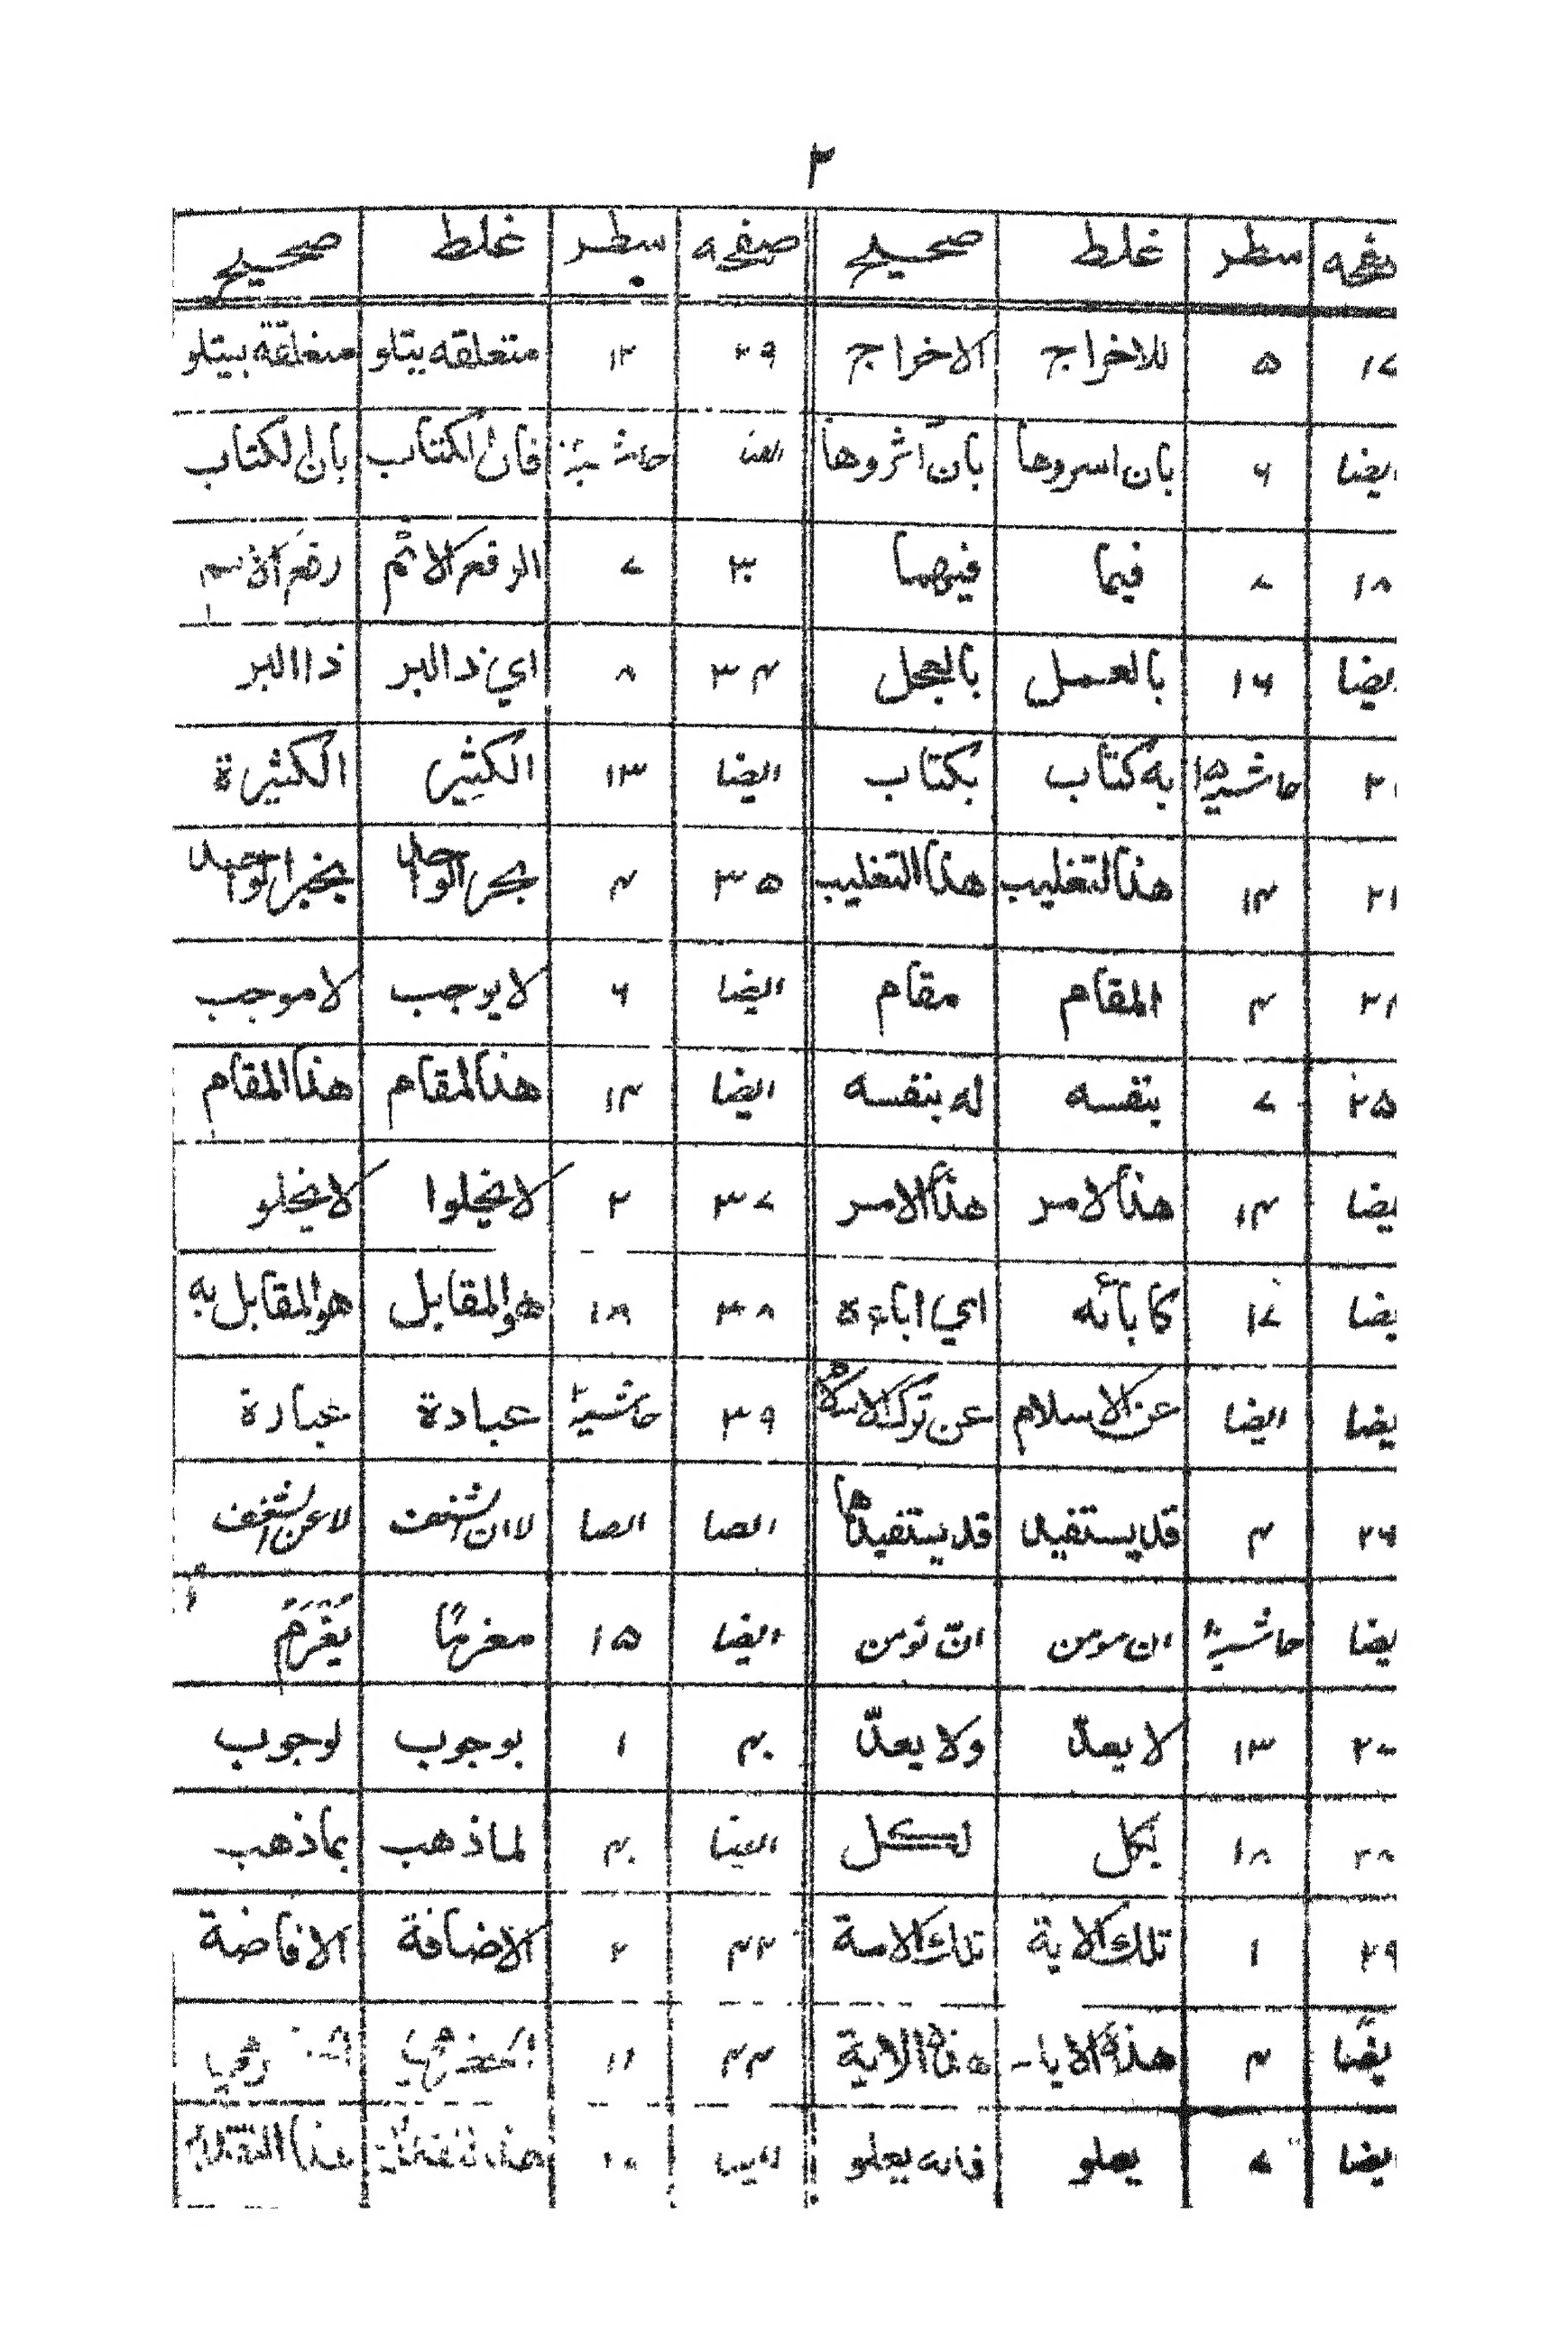 ٢
صفحه سطر غلط صحيح صفحه سطر غلط صحيح
١٧ ٥ للاخراج الاخراج ٢٩ ١٢ متعلقه يتلو متعلقة بيتلو
ايضا ٦ بان اسروها بان اثروها ايضا حاشية فان الكتاب بان الكتاب
١٨ ٨ فيما فيهما ٣٠ ٧
ايضا ١٦ بالعمل بالعجل ٣٤ ٨ اي ذا البر ذا البر
حاشيه به كتاب بكتاب ايضا ١٣ الكثير الكثيرة
٢١ ١٤ هذالتغليب هذا التغليب ٣٥ ٤ بخبر الواحد
٤ المقام مقام ايضا ٦ لا يوجب لا موجب
٢٥ ٧ بنفسه له بنفسه ايضا ١٤ هذالمقام هذا المقام
ايضا ١٤ هذالامر هذا الامر ٣٧ ٢ لا يخلوا لا يخلو
ايضا ١٧ كابائه اي اباءه ٣٨ ١٨ هو المقابل هو المقابل به
ايضا ايضا عن الاسلام عن ترك الاسلام ٣٩ حاشية عبادة عبارة
٢٦ ٤ قد يستفيد قد يستفيدها ايضا ايضا
ايضا حاشية ان مومن ان نومن ايضا ١٥ مغرمًا يَغْرَمُ
٢٧ ١٣ لا يعدّ ولا يعدّ ٤٠ ١ بوجوب لوجوب
٢٨ ١٨ بكل لكل ايضا ٤ لما ذهب بما ذهب
٢٩ ١ تلك الاية تلك الامة ٤٢ ٢ الاضافة الافاضة
ايضا ٤ هذه الايا هذه الاية ٤٤ ١١
ايضا ٧ يعلو فانه يعلو ايضا ١٠